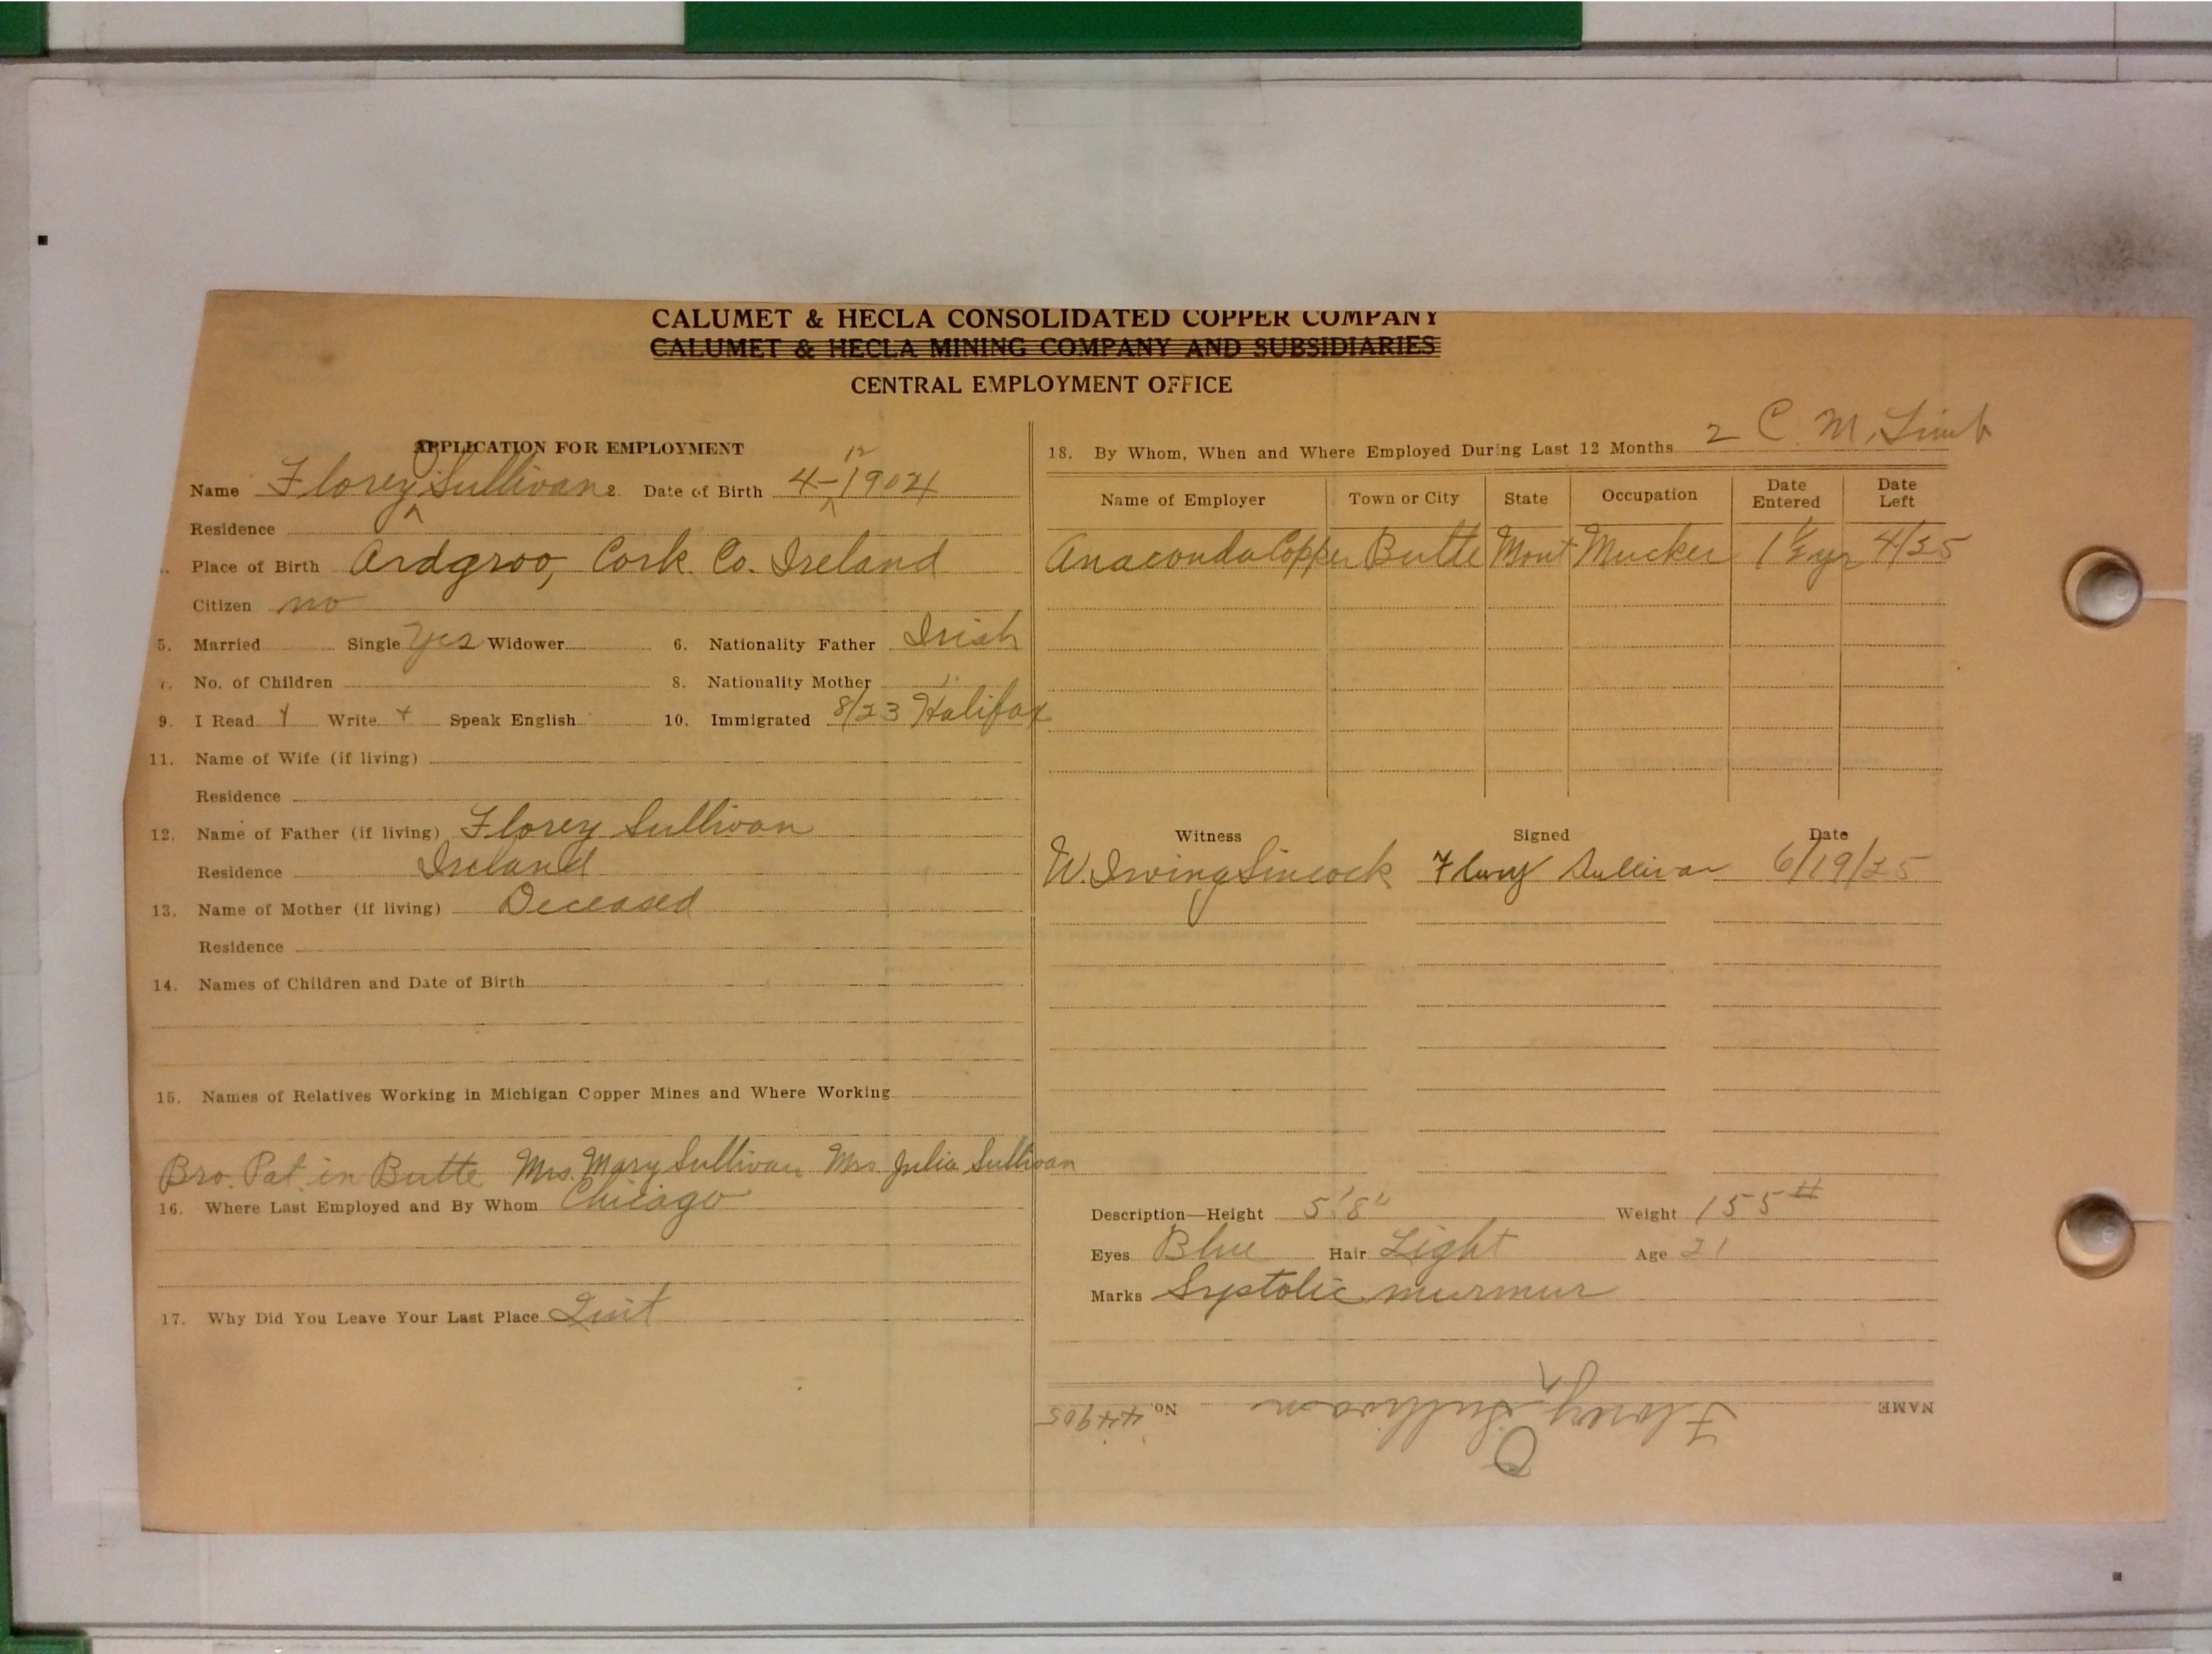 CALUMET & HECLA CONSOLIDATED COPPER COMPANY
CALUMET & HECLA MINING COMPANY AND SUBSIDIARIES
CENTRAL EMPLOYMENT OFFICE
APPLICATION FOR EMPLOYMENT
Name Florey O Sullivan 2. Date of Birth 4-12 1904
Residence
Place of Birth Ardgroo, Cork Co. Ireland
Citizen no
5. Married Single yes Widower 6. Nationality Father Irish
7. No. of Children 8. Nationality Mother "
9. I Read Y Write Y Speak English 10. Immigrated 8/23 Halifax
11. Name of Wife (if living)
Residence
12. Name of Father (if living) Florey Sullivan
Residence Ireland
13. Name of Mother (if living) Deceased
Residence
14. Names of Children and Date of Birth
15. Names of Relatives Working in Michigan Copper Mines and Where Working
Bro. Pat. in Butte Mrs. Mary Sullivan Mrs. Julia Sullivan
16. Where Last Employed and By Whom Chicago
17. Why Did You Leave Your Last Place Quit
2 C. M.
18. By Whom, When and Where Employed During Last 12 Months
Name of Employer Town or City State Occupation Date Entered Date Left
Anaconda Copper Butte Mont Mucker 1 1/2 yr 4/25
Witness Signed Date
W. Irving Sincock Flory Sullivan 6/19/25
Description—Height 5'8" Weight 155#
Eyes Blue Hair Light Age 21
Marks Systolic murmur
NAME Florey O Sullivan No. 44905